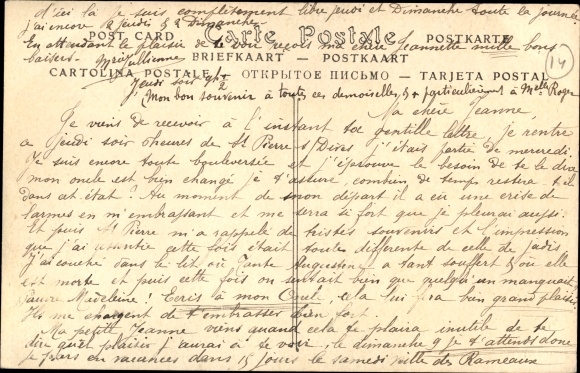 D'ici là je suis complètement libre jeudi et Dimanche toute la journée
j'ai encore 2 jeudis & 2 Dimanches
En attendant le plaisir de te voir reçois ma chère Jeannette mille bons
baisers.
POST CARD Carte Postale POSTKARTE
BRIEFKAART - POSTKAART
CARTOLINA POSTALE ОТКРЫТОЕ ПИСЬМО - TARJETA POSTAL
14
Jeudi soir 9h 1/2
Mon bon souvenir à toutes ces demoiselles, & particulièrement à Melle Roger
Ma chère Jeanne,
Je viens de recevoir à l'instant ta gentille lettre, je rentre
ce jeudi soir 9 heures de St Pierre s/Dives j'étais partie de mercredi.
Je suis encore toute bouleversée et j'éprouve le besoin de te le dire
mon oncle est bien changé je t'assure, combien de temps restera-t-il
dans cet état? Au moment de mon départ il a eu une crise de
larmes en m'embrassant et me serra si fort que je pleurai aussi.
Et puis St Pierre m'a rappelé de tristes souvenirs et l'impression
que j'ai ressentie cette fois était toute différente de celle de jadis
j'ai couché dans le lit où Tante Augustine a tant souffert & où elle
est morte et puis cette fois on sentait bien que quelqu'un manquait
pauvre Madeleine! Ecris à mon Oncle, cela lui fera bien grand plaisir
Ils me chargent de t'embrasser bien fort.
Ma petite Jeanne viens quand cela te plaira inutile de te
dire quel plaisir j'aurai à te voir, le dimanche 9 je t'attends donc
je pars en vacances dans 15 jours le samedi veille des Rameaux